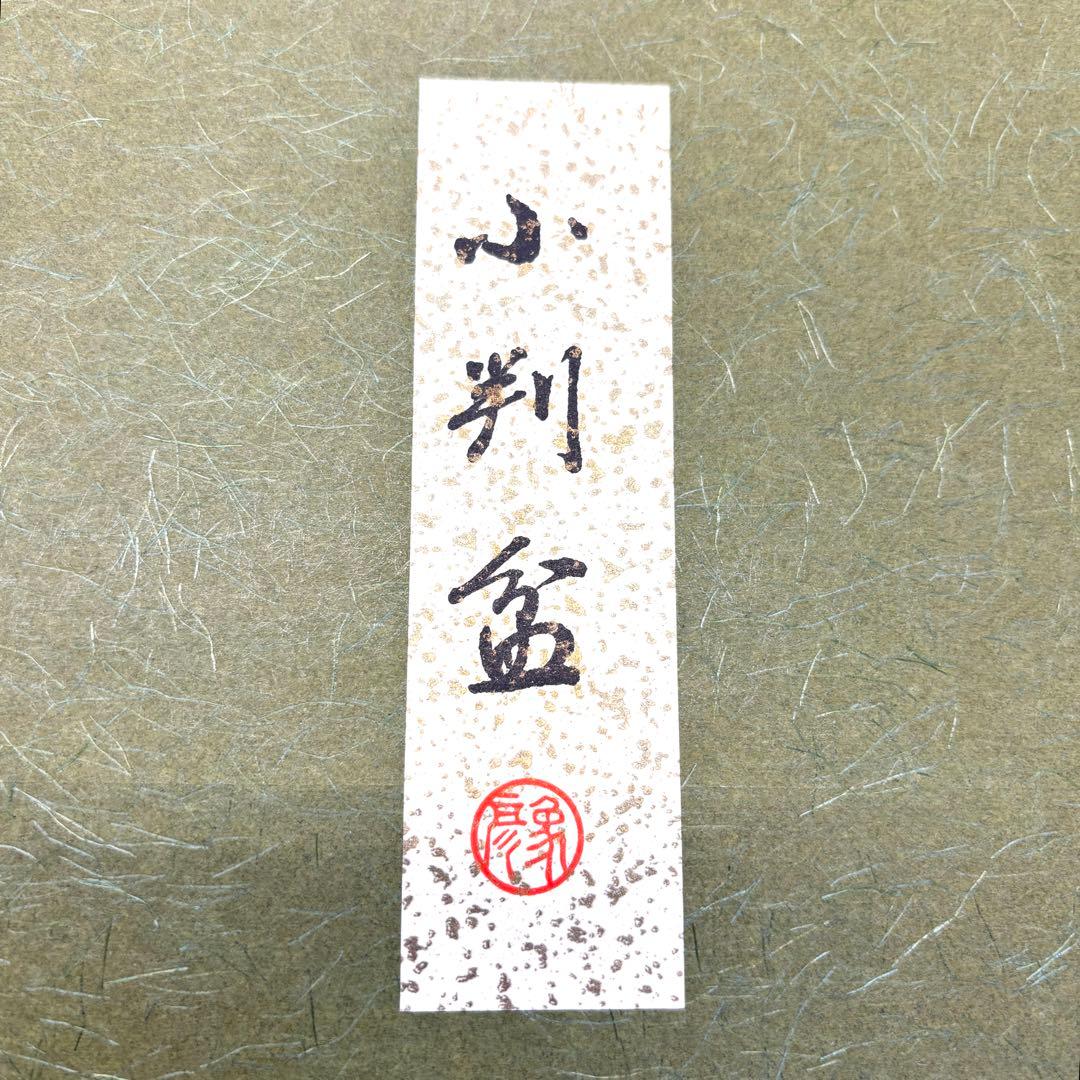 小判盆